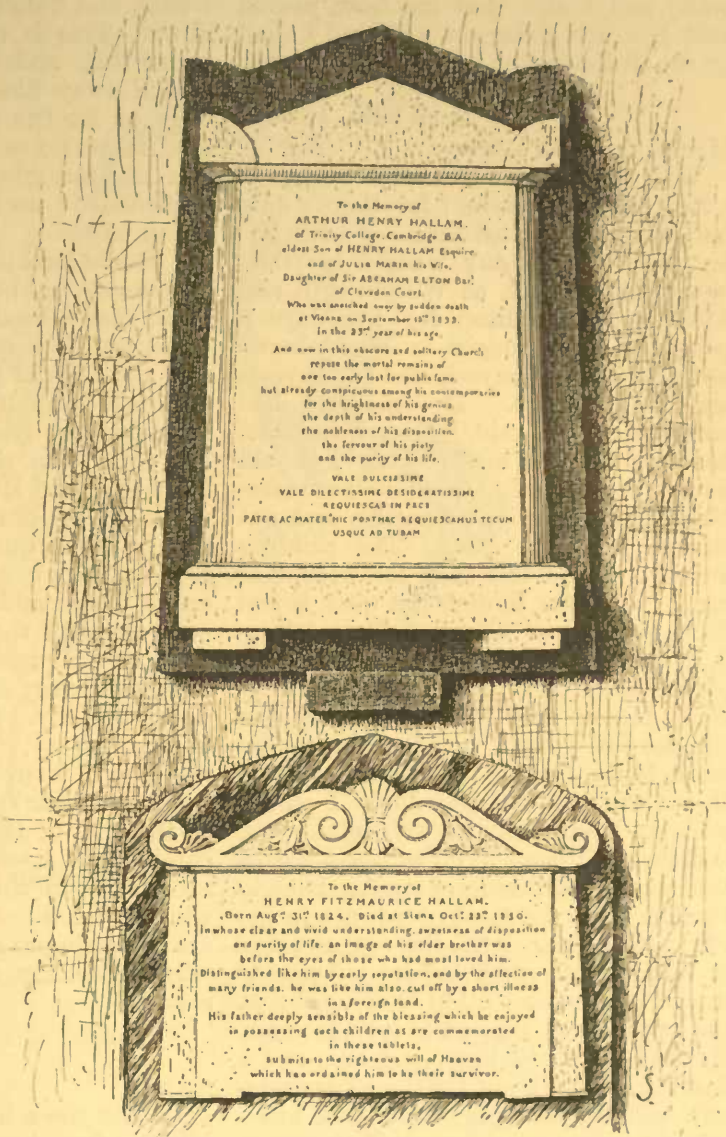 To the Memory of
ARTHUR HENRY HALLAM.
of Trinity College. Cambridge B A.
eldest Son of HENRY HALLAM Esquire.
and of JULIA MARIA his Wife,
Daughter of Sir ABRAHAM ELTON Bart
of Clevedon Court.
Who was snatched away by sudden death
at Vienna on September 15th 1833.
in the 23rd year of his age.
And now in this obscure and solitary Church
repose the mortal remains of
one too early lost for public fame.
but already conspicuous among his contemporaries
for the brightness of his genius.
the depth of his understanding
the nobleness of his disposition.
the fervour of his piety
and the purity of his life.
VALE DULCISSIME
VALE DILECTISSIME DESIDERATISSIME
REQUIESCAS IN PACE
PATER AC MATER HIC POSTHAC REQUIESCAMUS TECUM
USQUE AD TUBAM
To the Memory of
HENRY FITZMAURICE HALLAM.
Born Augt 31st 1824. Died at Siena Octr 25th 1850.
In whose clear and vivid understanding. sweetness of disposition
and purity of life. an image of his elder brother was
before the eyes of those who had most loved him.
Distinguished like him by early reputation. and by the affection of
many friends. he was like him also. cut off by a short illness
in a foreign land.
His father deeply sensible of the blessing which he enjoyed
in possessing such children as are commemorated
in these tablets,
submits to the righteous will of Heaven
which has ordained him to be their survivor.
S.